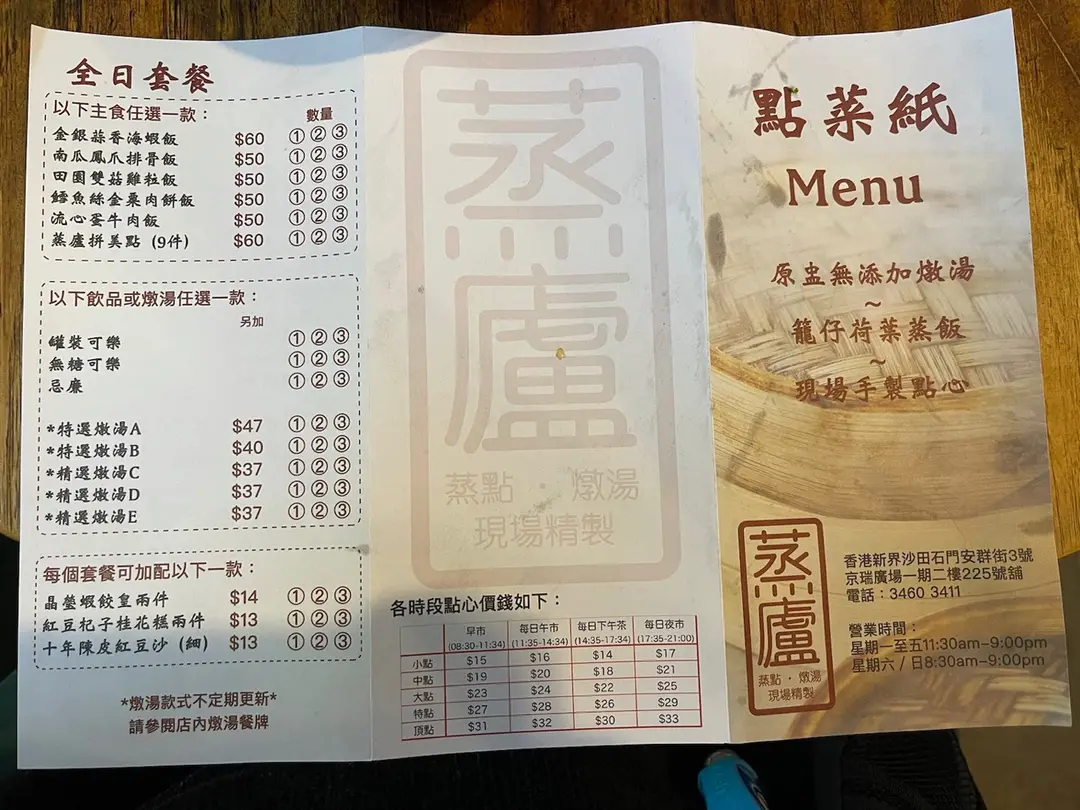 全日套餐
以下主食任選一款：
數量
金銀蒜香海蝦飯 $60 ① ② ③
南瓜鳳爪排骨飯 $50 ① ② ③
田園雙菇雞粒飯 $50 ① ② ③
鱈魚絲金粟肉餅飯 $50 ① ② ③
流心蛋牛肉飯 $50 ① ② ③
蒸廬拼美點 (9件) $60 ① ② ③
以下飲品或燉湯任選一款：
另加
罐裝可樂 ① ② ③
無糖可樂 ① ② ③
忌廉 ① ② ③
*特選燉湯A $47 ① ② ③
*特選燉湯B $40 ① ② ③
*精選燉湯C $37 ① ② ③
*精選燉湯D $37 ① ② ③
*精選燉湯E $37 ① ② ③
每個套餐可加配以下一款：
晶瑩蝦餃皇兩件 $14 ① ② ③
紅豆杞子桂花糕兩件 $13 ① ② ③
十年陳皮紅豆沙 (細) $13 ① ② ③
*燉湯款式不定期更新*
請參閱店內燉湯餐牌
蒸廬
蒸點・燉湯
現場精製
各時段點心價錢如下：
早市 每日午市 每日下午茶 每日夜市
(08:30-11:34) (11:35-14:34) (14:35-17:34) (17:35-21:00)
小點 $15 $16 $14 $17
中點 $19 $20 $18 $21
大點 $23 $24 $22 $25
特點 $27 $28 $26 $29
頂點 $31 $32 $30 $33
點菜紙
Menu
原盅無添加燉湯
~
籠仔荷葉蒸飯
~
現場手製點心
蒸廬
蒸點・燉湯
現場精製
香港新界沙田石門安群街3號
京瑞廣場一期二樓225號舖
電話：3460 3411
營業時間：
星期一至五11:30am–9:00pm
星期六 / 日8:30am–9:00pm